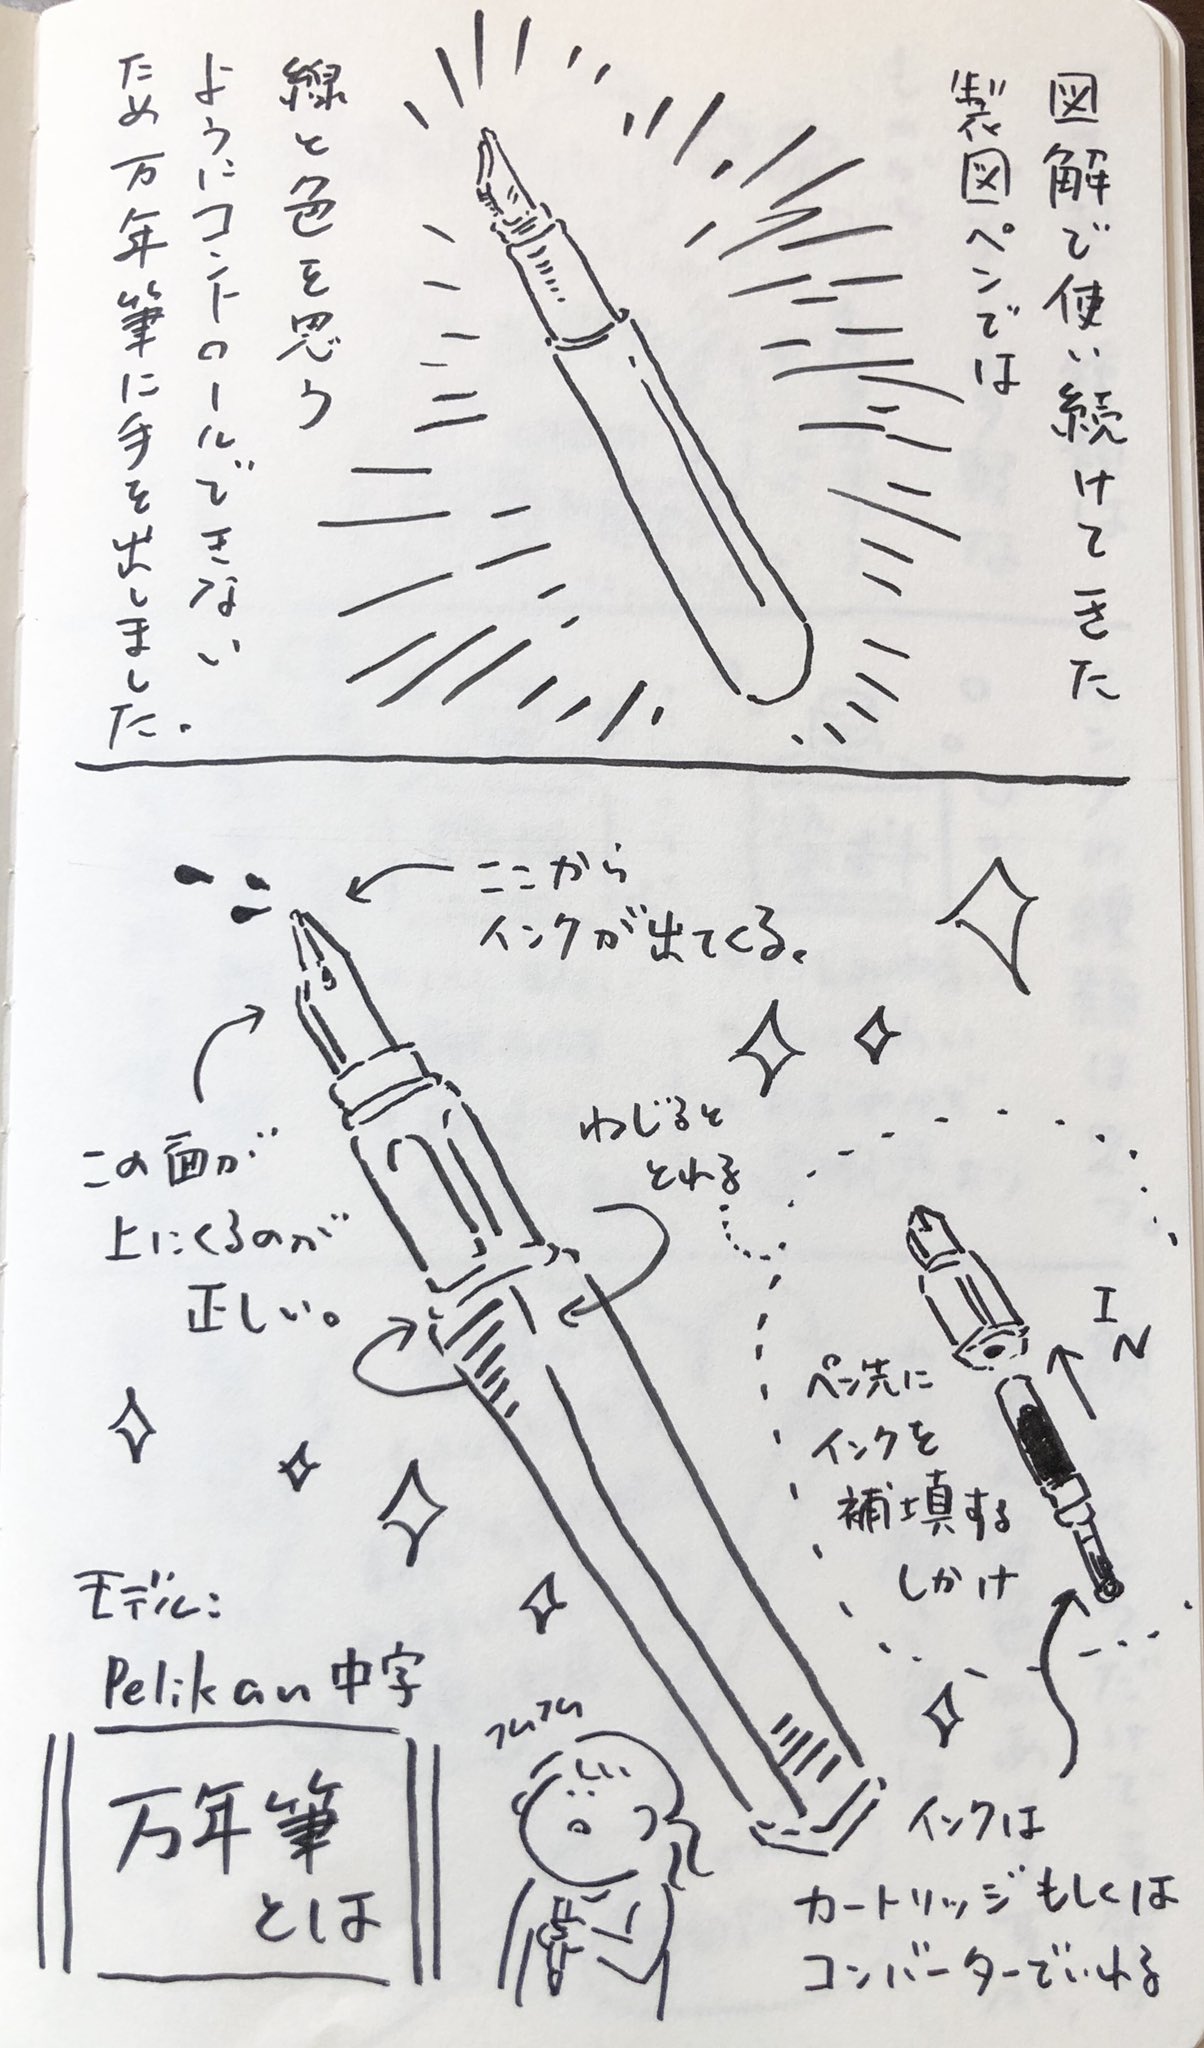 図解で使い続けてきた
製図ペンでは
線と色を思う
ようにコントロールできない
ため万年筆に手を出しました。
ここから
インクが出てくる。
この面が
上にくるのが
正しい。
ねじると
とれる
IN
ペン先に
インクを
補填する
しかけ
モデル:
Pelikan 中字
万年筆
とは
フムフム
インクは
カートリッジもしくは
コンバーターでいれる